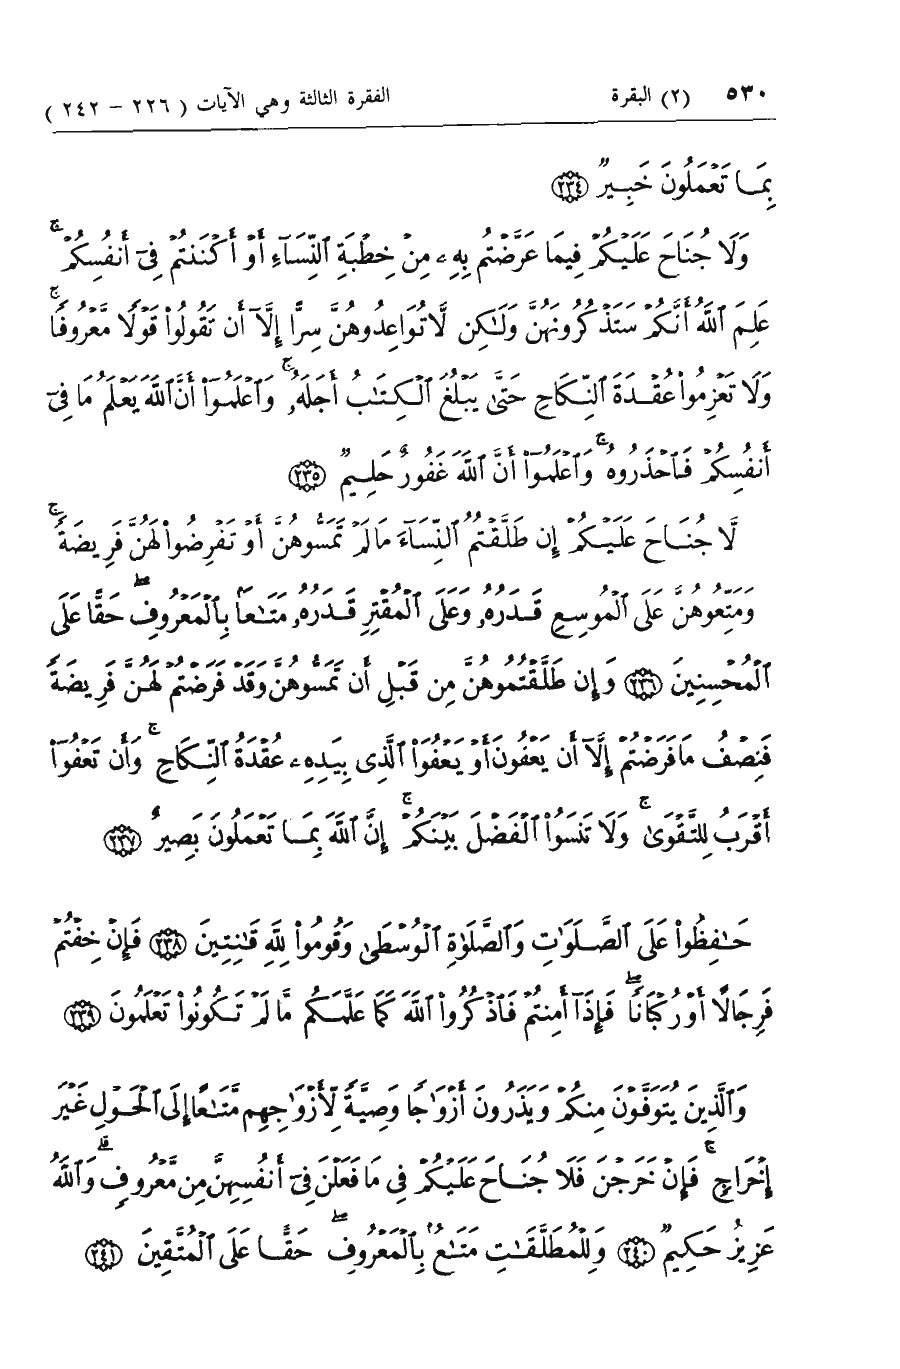 ٥٣٠ (٢) البقرة الفقرة الثالثة وهي الآيات ( ٢٢٦ – ٢٤٢ )
بِمَا تَعْمَلُونَ خَبِيرٌ ﴿٢٣٤﴾
وَلَا جُنَاحَ عَلَيْكُمْ فِيمَا عَرَّضْتُم بِهِۦ مِنْ خِطْبَةِ ٱلنِّسَآءِ أَوْ أَكْنَنتُمْ فِىٓ أَنفُسِكُمْ ۚ
عَلِمَ ٱللَّهُ أَنَّكُمْ سَتَذْكُرُونَهُنَّ وَلَـٰكِن لَّا تُوَاعِدُوهُنَّ سِرًّا إِلَّآ أَن تَقُولُوا۟ قَوْلًا مَّعْرُوفًا ۚ
وَلَا تَعْزِمُوا۟ عُقْدَةَ ٱلنِّكَاحِ حَتَّىٰ يَبْلُغَ ٱلْكِتَـٰبُ أَجَلَهُۥ ۚ وَٱعْلَمُوٓا۟ أَنَّ ٱللَّهَ يَعْلَمُ مَا فِىٓ
أَنفُسِكُمْ فَٱحْذَرُوهُ ۚ وَٱعْلَمُوٓا۟ أَنَّ ٱللَّهَ غَفُورٌ حَلِيمٌ ﴿٢٣٥﴾
لَّا جُنَاحَ عَلَيْكُمْ إِن طَلَّقْتُمُ ٱلنِّسَآءَ مَا لَمْ تَمَسُّوهُنَّ أَوْ تَفْرِضُوا۟ لَهُنَّ فَرِيضَةً ۚ
وَمَتِّعُوهُنَّ عَلَى ٱلْمُوسِعِ قَدَرُهُۥ وَعَلَى ٱلْمُقْتِرِ قَدَرُهُۥ مَتَـٰعًۢا بِٱلْمَعْرُوفِ ۖ حَقًّا عَلَى
ٱلْمُحْسِنِينَ ﴿٢٣٦﴾ وَإِن طَلَّقْتُمُوهُنَّ مِن قَبْلِ أَن تَمَسُّوهُنَّ وَقَدْ فَرَضْتُمْ لَهُنَّ فَرِيضَةً
فَنِصْفُ مَا فَرَضْتُمْ إِلَّآ أَن يَعْفُونَ أَوْ يَعْفُوَا۟ ٱلَّذِى بِيَدِهِۦ عُقْدَةُ ٱلنِّكَاحِ ۚ وَأَن تَعْفُوٓا۟
أَقْرَبُ لِلتَّقْوَىٰ ۚ وَلَا تَنسَوُا۟ ٱلْفَضْلَ بَيْنَكُمْ ۚ إِنَّ ٱللَّهَ بِمَا تَعْمَلُونَ بَصِيرٌ ﴿٢٣٧﴾
حَـٰفِظُوا۟ عَلَى ٱلصَّلَوَٰتِ وَٱلصَّلَوٰةِ ٱلْوُسْطَىٰ وَقُومُوا۟ لِلَّهِ قَـٰنِتِينَ ﴿٢٣٨﴾ فَإِنْ خِفْتُمْ
فَرِجَالًا أَوْ رُكْبَانًا ۖ فَإِذَآ أَمِنتُمْ فَٱذْكُرُوا۟ ٱللَّهَ كَمَا عَلَّمَكُم مَّا لَمْ تَكُونُوا۟ تَعْلَمُونَ ﴿٢٣٩﴾
وَٱلَّذِينَ يُتَوَفَّوْنَ مِنكُمْ وَيَذَرُونَ أَزْوَٰجًا وَصِيَّةً لِّأَزْوَٰجِهِم مَّتَـٰعًا إِلَى ٱلْحَوْلِ غَيْرَ
إِخْرَاجٍ ۚ فَإِنْ خَرَجْنَ فَلَا جُنَاحَ عَلَيْكُمْ فِى مَا فَعَلْنَ فِىٓ أَنفُسِهِنَّ مِن مَّعْرُوفٍ ۗ وَٱللَّهُ
عَزِيزٌ حَكِيمٌ ﴿٢٤٠﴾ وَلِلْمُطَلَّقَـٰتِ مَتَـٰعٌۢ بِٱلْمَعْرُوفِ ۖ حَقًّا عَلَى ٱلْمُتَّقِينَ ﴿٢٤١﴾